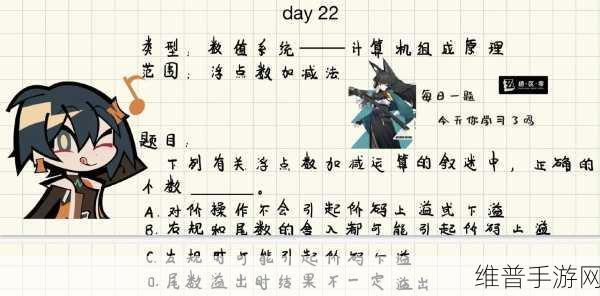 day 22
类型：数值系统——计算机组成原理
范围：浮点数加减法
绝区零
每日一题
今天你学习了吗
题目：
下列有关浮点数加减运算的叙述中，正确的
个数______。
A.对阶操作不会引起阶码上溢或下溢
B.右规和尾数的舍入都可能引起阶码上溢
C.左规时可能引起阶码下溢
D.尾数溢出时结果不一定溢出
维普手游网